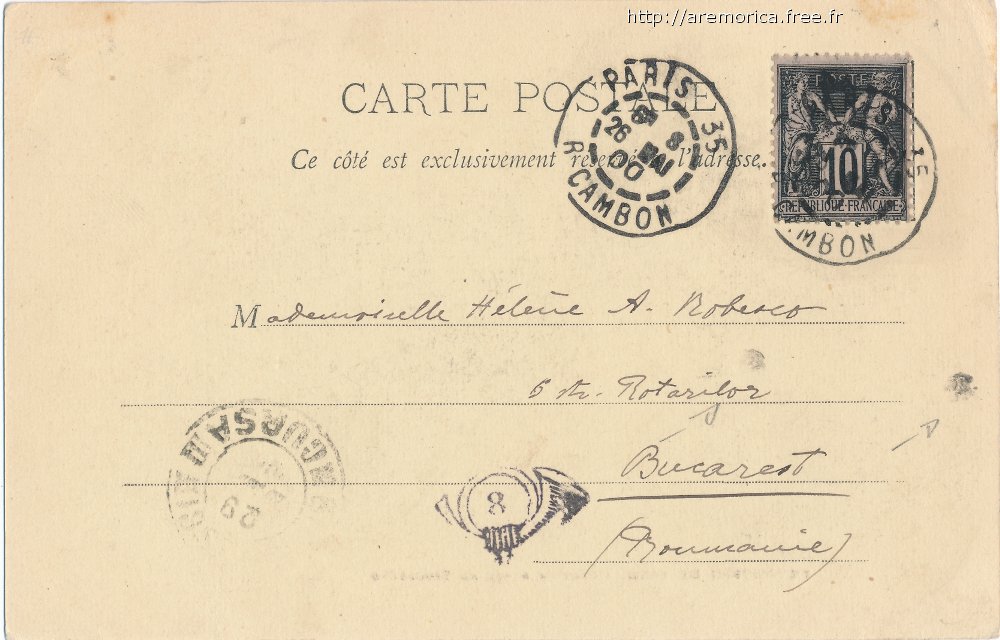 http://aremorica.free.fr
CARTE POSTALE
Ce côté est exclusivement réservé à l'adresse.
PARIS 35
8E 26 MAI 00
R. CAMBON
POSTE
10
REPUBLIQUE FRANÇAISE
35
MBON
Mademoiselle Hélène A. Robesco
6 str. Rotarilor
Bucarest
(Roumanie)
8
CURSA II
29